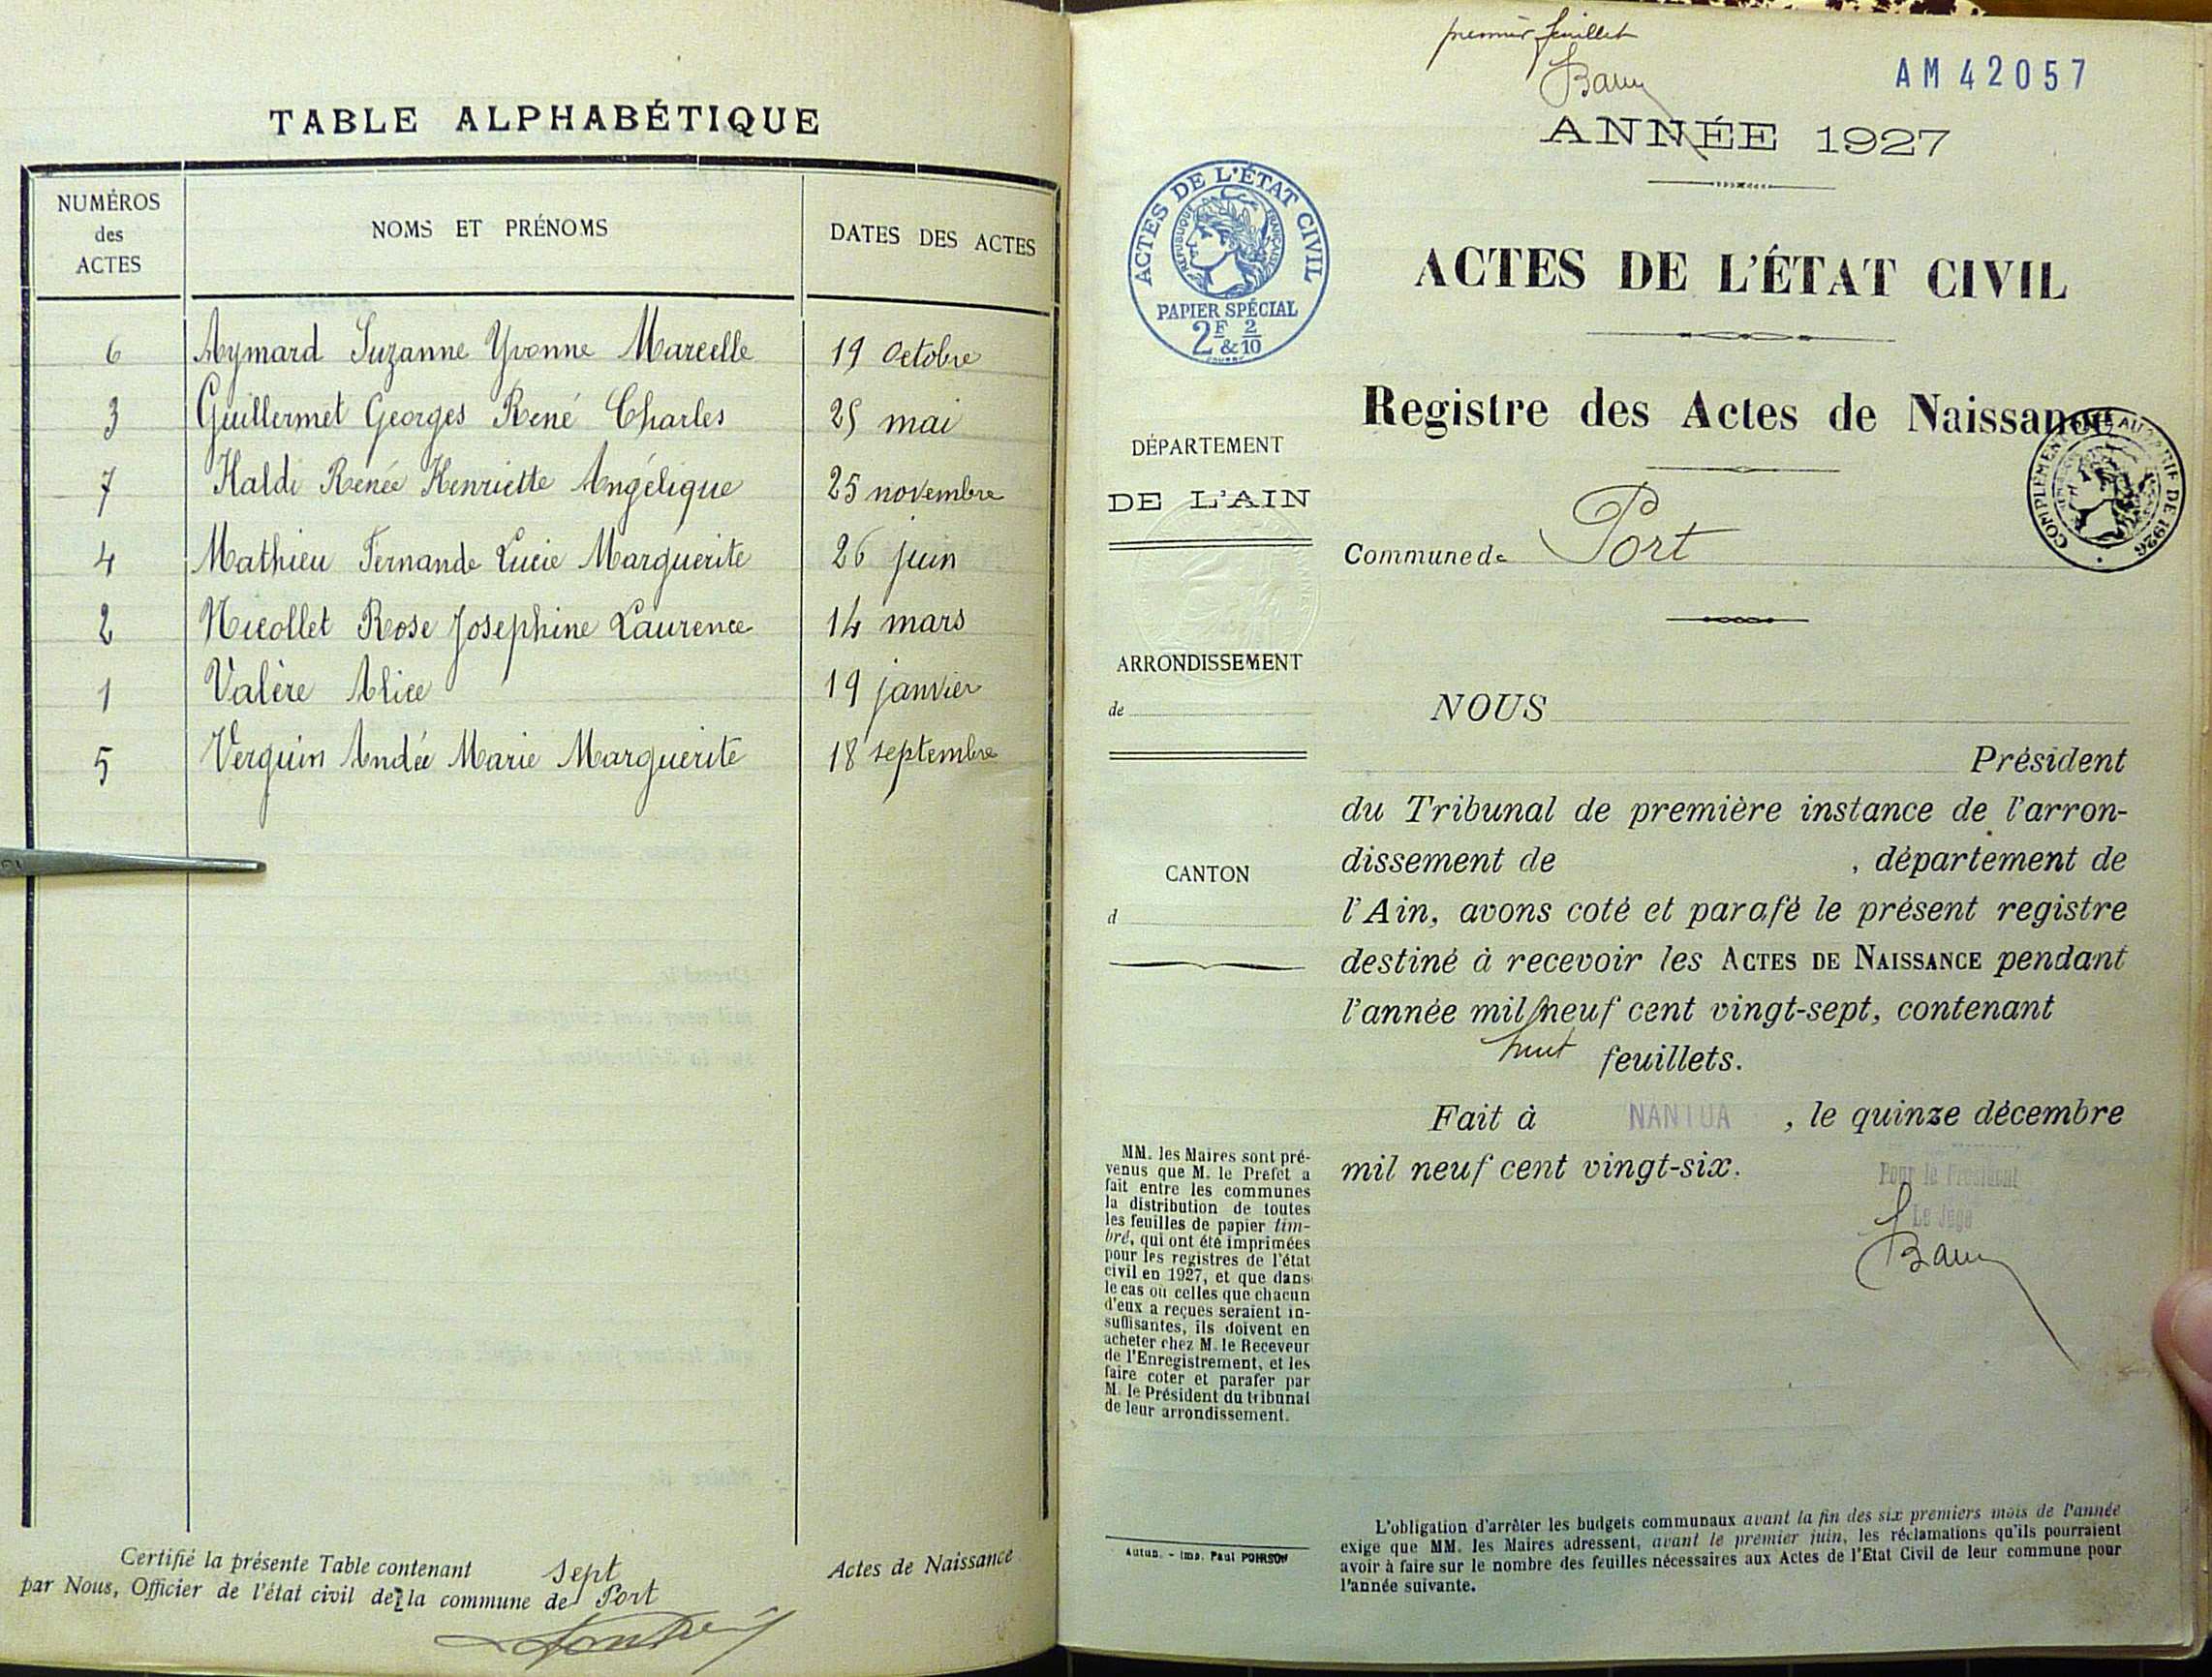 TABLE ALPHABÉTIQUE
NUMÉROS
des
ACTES
NOMS ET PRÉNOMS
DATES DES ACTES
6 Aymard Suzanne Yvonne Marcelle 19 Octobre
3 Guillermet Georges René Charles 25 mai
7 Haldi Renée Henriette Angélique 25 novembre
4 Mathieu Fernande Lucie Marguerite 26 juin
2 Nicollet Rose Josephine Laurence 14 mars
1 Valère Alice 19 janvier
5 Verguin Andée Marie Marguerite 18 septembre
Certifié la présente Table contenant sept Actes de Naissance
par Nous, Officier de l'état civil de la commune de Port
premier feuillet
AM 42057
ANNÉE 1927
ACTES DE L'ÉTAT CIVIL
RÉPUBLIQUE FRANÇAISE
PAPIER SPÉCIAL
2F & 2/10
ACTES DE L'ÉTAT CIVIL
Registre des Actes de Naissance
COMPLÉMENT AU TARIF DE 1926
DÉPARTEMENT
DE L'AIN
Commune de Port
ARRONDISSEMENT
de
CANTON
d
NOUS
Président
du Tribunal de première instance de l'arron-
dissement de , département de
l'Ain, avons coté et parafé le présent registre
destiné à recevoir les ACTES DE NAISSANCE pendant
l'année mil neuf cent vingt-sept, contenant
huit feuillets.
Fait à NANTUA, le quinze décembre
mil neuf cent vingt-six.
Pour le Président
Le Juge
MM. les Maires sont pré-
venus que M. le Préfet a
fait entre les communes
la distribution de toutes
les feuilles de papier tim-
bré, qui ont été imprimées
pour les registres de l'état
civil en 1927, et que dans
le cas où celles que chacun
d'eux a reçues seraient in-
suffisantes, ils doivent en
acheter chez M. le Receveur
de l'Enregistrement, et les
faire coter et parafer par
M. le Président du tribunal
de leur arrondissement.
Autun. - Imp. Paul POIRSON
L'obligation d'arrêter les budgets communaux avant la fin des six premiers mois de l'année
exige que MM. les Maires adressent, avant le premier juin, les réclamations qu'ils pourraient
avoir à faire sur le nombre des feuilles nécessaires aux Actes de l'Etat Civil de leur commune pour
l'année suivante.